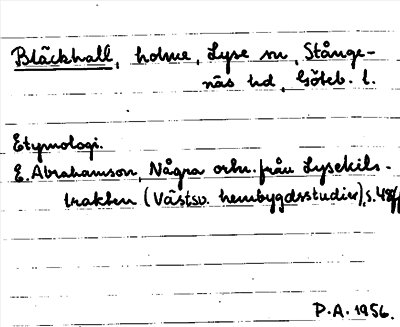 Bläckhall, holme, Lyse sn, Stånge-
näs hd, Göteb. l.
Etymologi.
E. Abrahamson, Några ortn. från Lysekils-
trakten (Västsv. hembygdsstudier), s. 48ff
P.A. 1956.